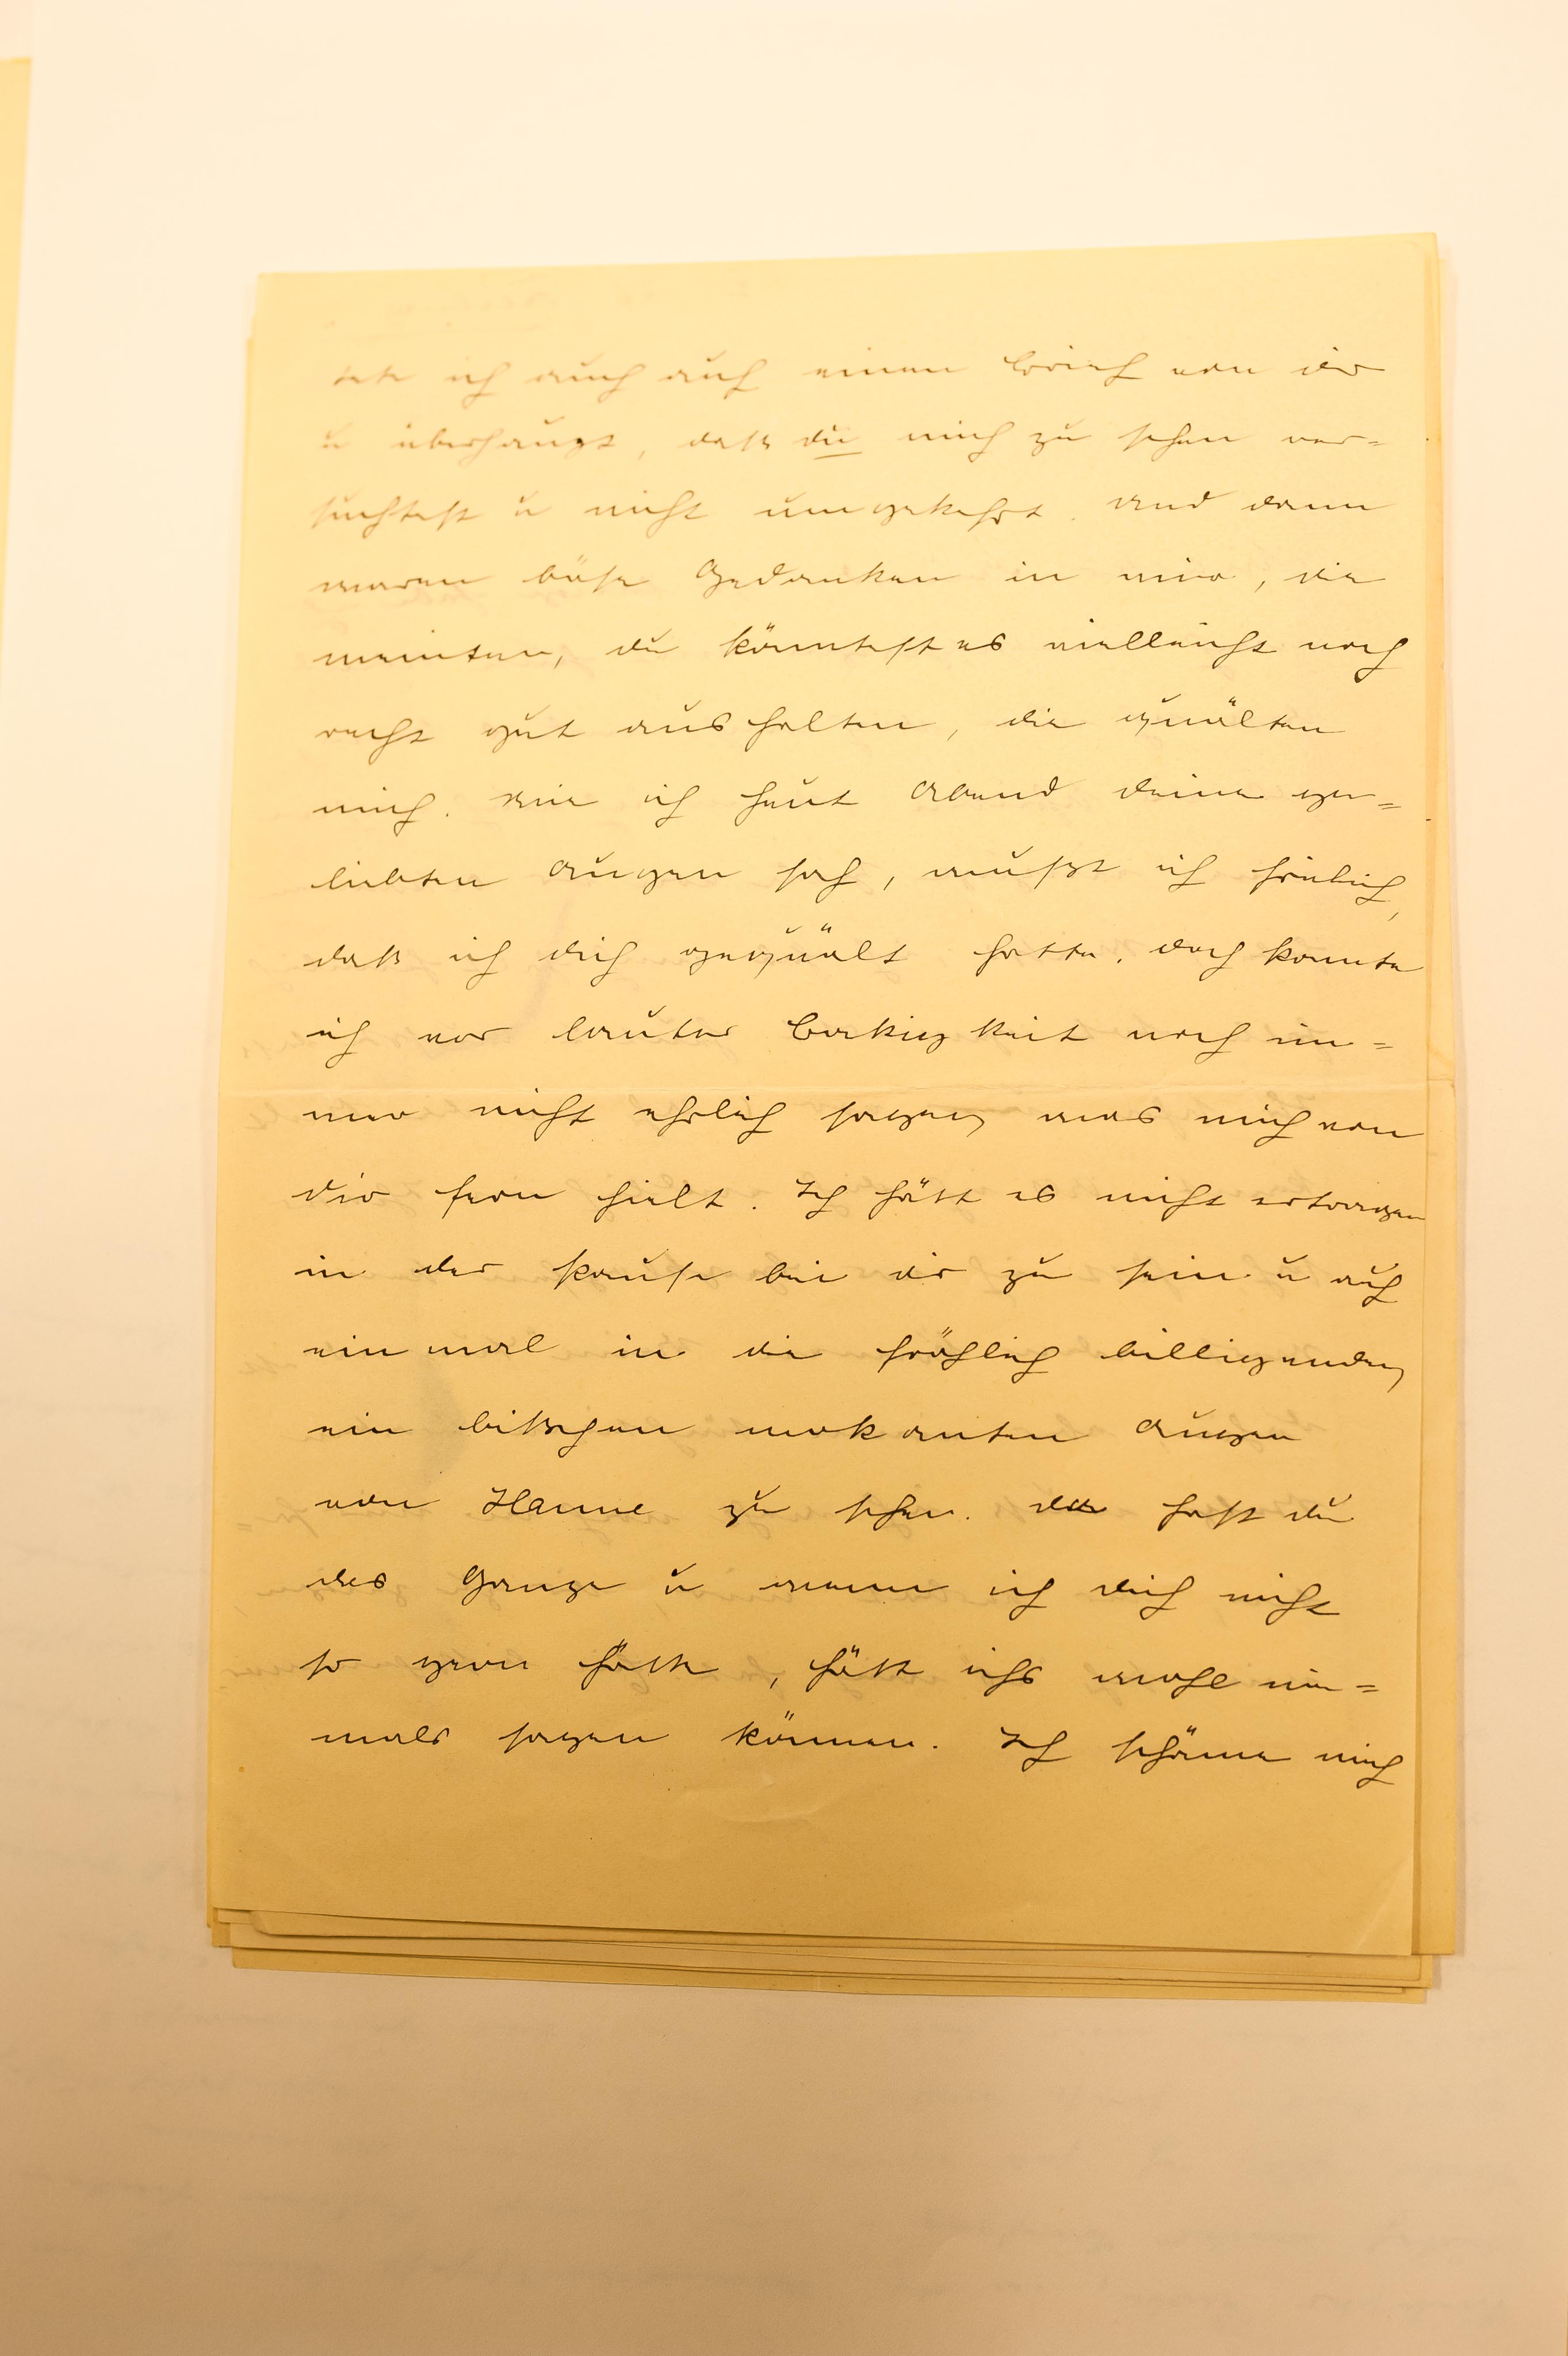 tete ich auch auf einen Brief von dir
u überhaupt, daß du mich zu sehen ver=
suchtest u nicht umgekehrt. Und dann
waren böse Gedanken in mir, die
meinten, du könntest es vielleicht noch
recht gut aushalten, die quälten
mich. Wie ich heut Abend deine ge=
liebten Augen sah, wußt ich freilich,
daß ich dich gequält hatte. doch konnte
ich vor lauter Bockigkeit noch im=
mer nicht ehrlich sagen, was mich von
dir fern hielt. Ich hätt es nicht ertragen
in der Pause bei dir zu sein u auf
einmal in die fröhlich billigenden,
ein bißchen mokanten Augen
von Hanne zu sehen. da hast du
das Ganze u wenn ich dich nicht
so gern hätte, hätt ichs wohl nie=
mals sagen können. Ich schäme mich